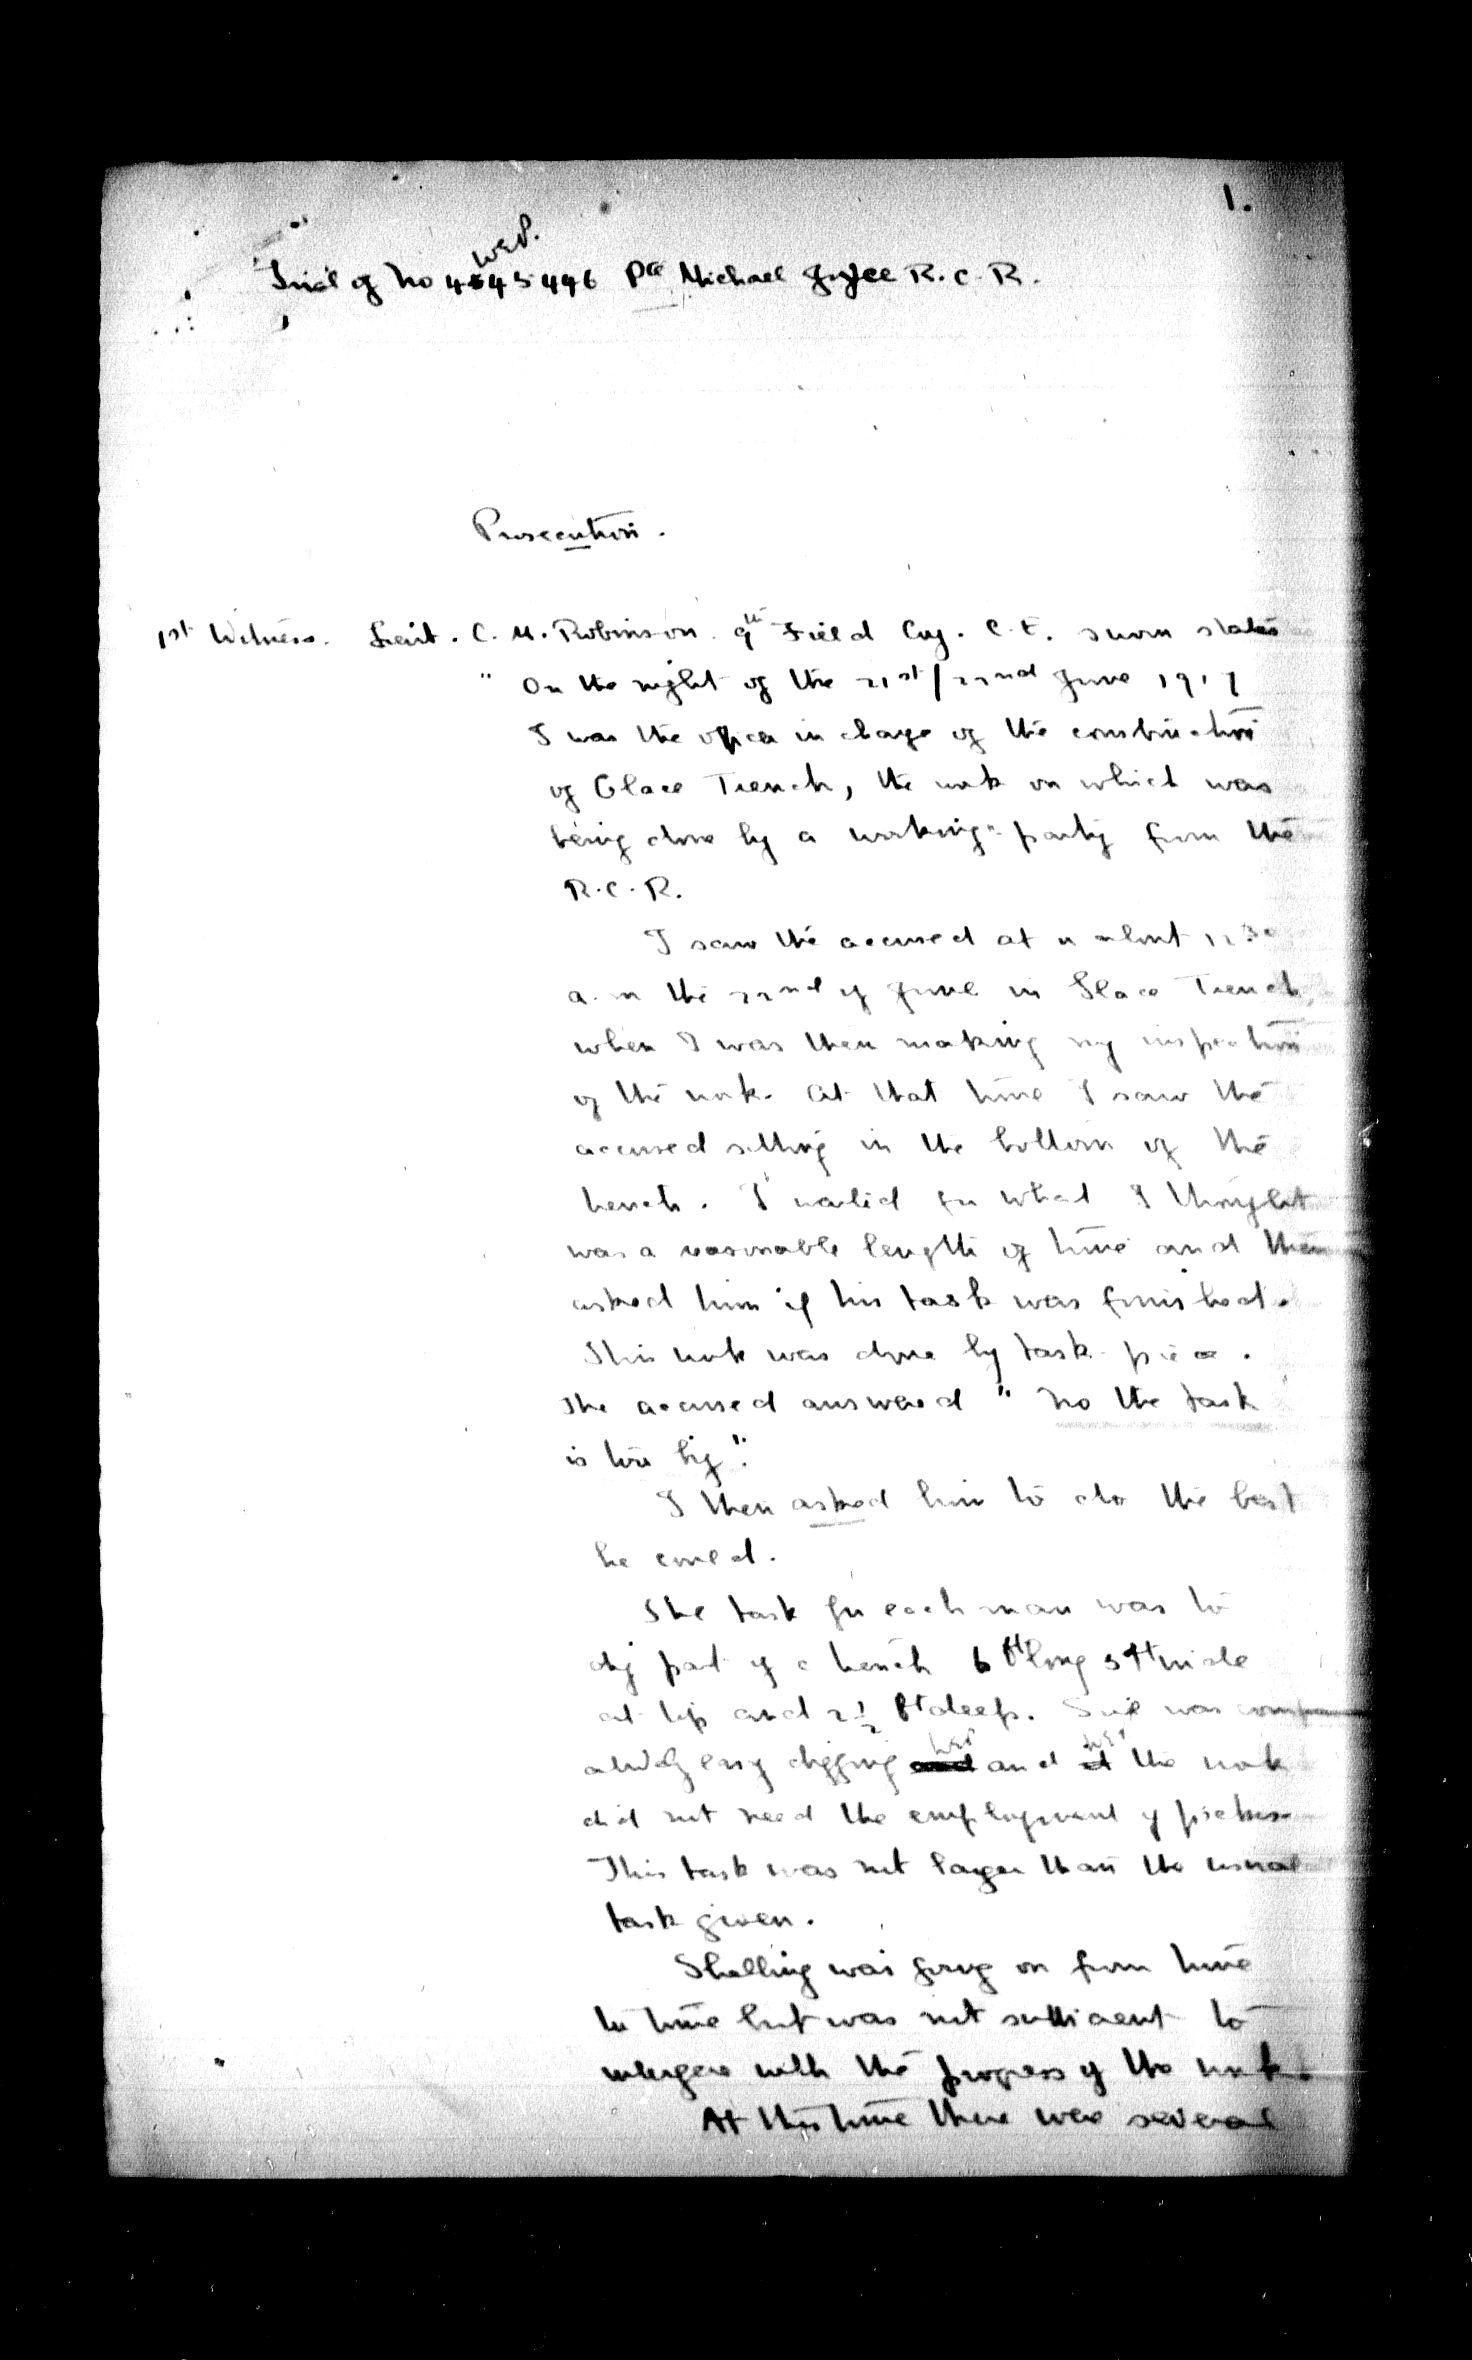 1.
W.E.P.
Trial of No 4545446 Pte Michael Joyce R.C.R.
Prosecution.
1st Witness. Lieut. C. M. Robinson 9th Field Coy. C.E. sworn states
" On the night of the 21st/22nd June 1917
I was the officer in charge of the construction
of Glace Trench, the work on which was
being done by a working-party from the
R.C.R.
I saw the accused at about 12 30
a.m the 22nd of June in Glace Trench
when I was then making my inspection
of the work. At that time I saw the
accused sitting in the bottom of the
trench. I waited for what I thought
was a reasonable length of time and then
asked him if his task was finished.
This work was done by task piece.
The accused answered " No the task
is too big".
I then asked him to do the best
he could.
The task for each man was to
dig part of a trench 6 ft long 5 ft wide
at top and 2 1/2 ft deep. Soil was compar
atively easy digging and and it the work
did not need the employment of picks
This task was not larger than the usual
task given.
Shelling was going on from time
to time but was not sufficient to
interfere with the progress of the work.
At this time there were several